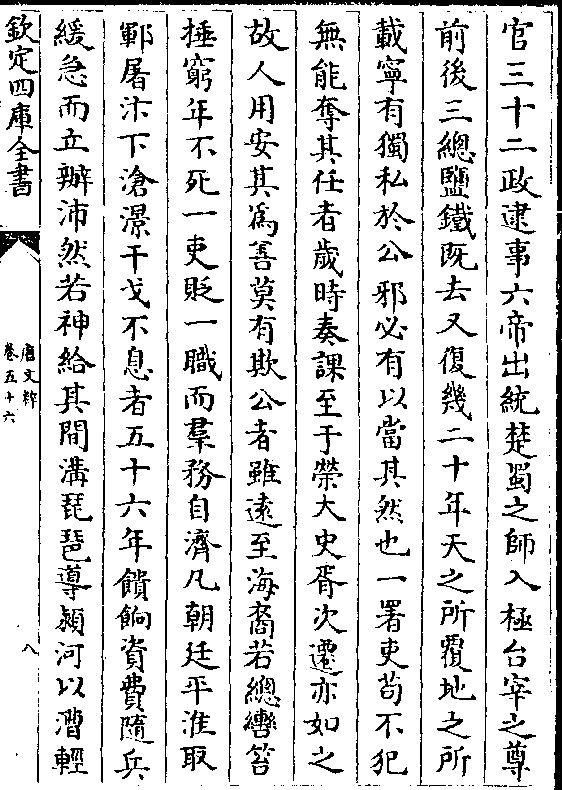 官三十二政建事六帝出統楚蜀之師入極台宰之尊
前後三總鹽鐵既去又復幾二十年天之所覆地之所
載寧有獨私於公邪必有以當其然也一署吏苟不犯
無能奪其任者歲時奏課至于榮大史胥次遷亦如之
故人用安其爲善莫有欺公者雖遠至海裔若總轡笞
捶窮年不死一吏貶一職而羣務自濟凡朝廷平淮取
鄆屠汴下滄景干戈不息者五十六年饋餉資費隨兵
緩急而立辦沛然若神給其間溝琵琶導潁河以漕輕
欽定四庫全書
唐文粹
卷五十六
八